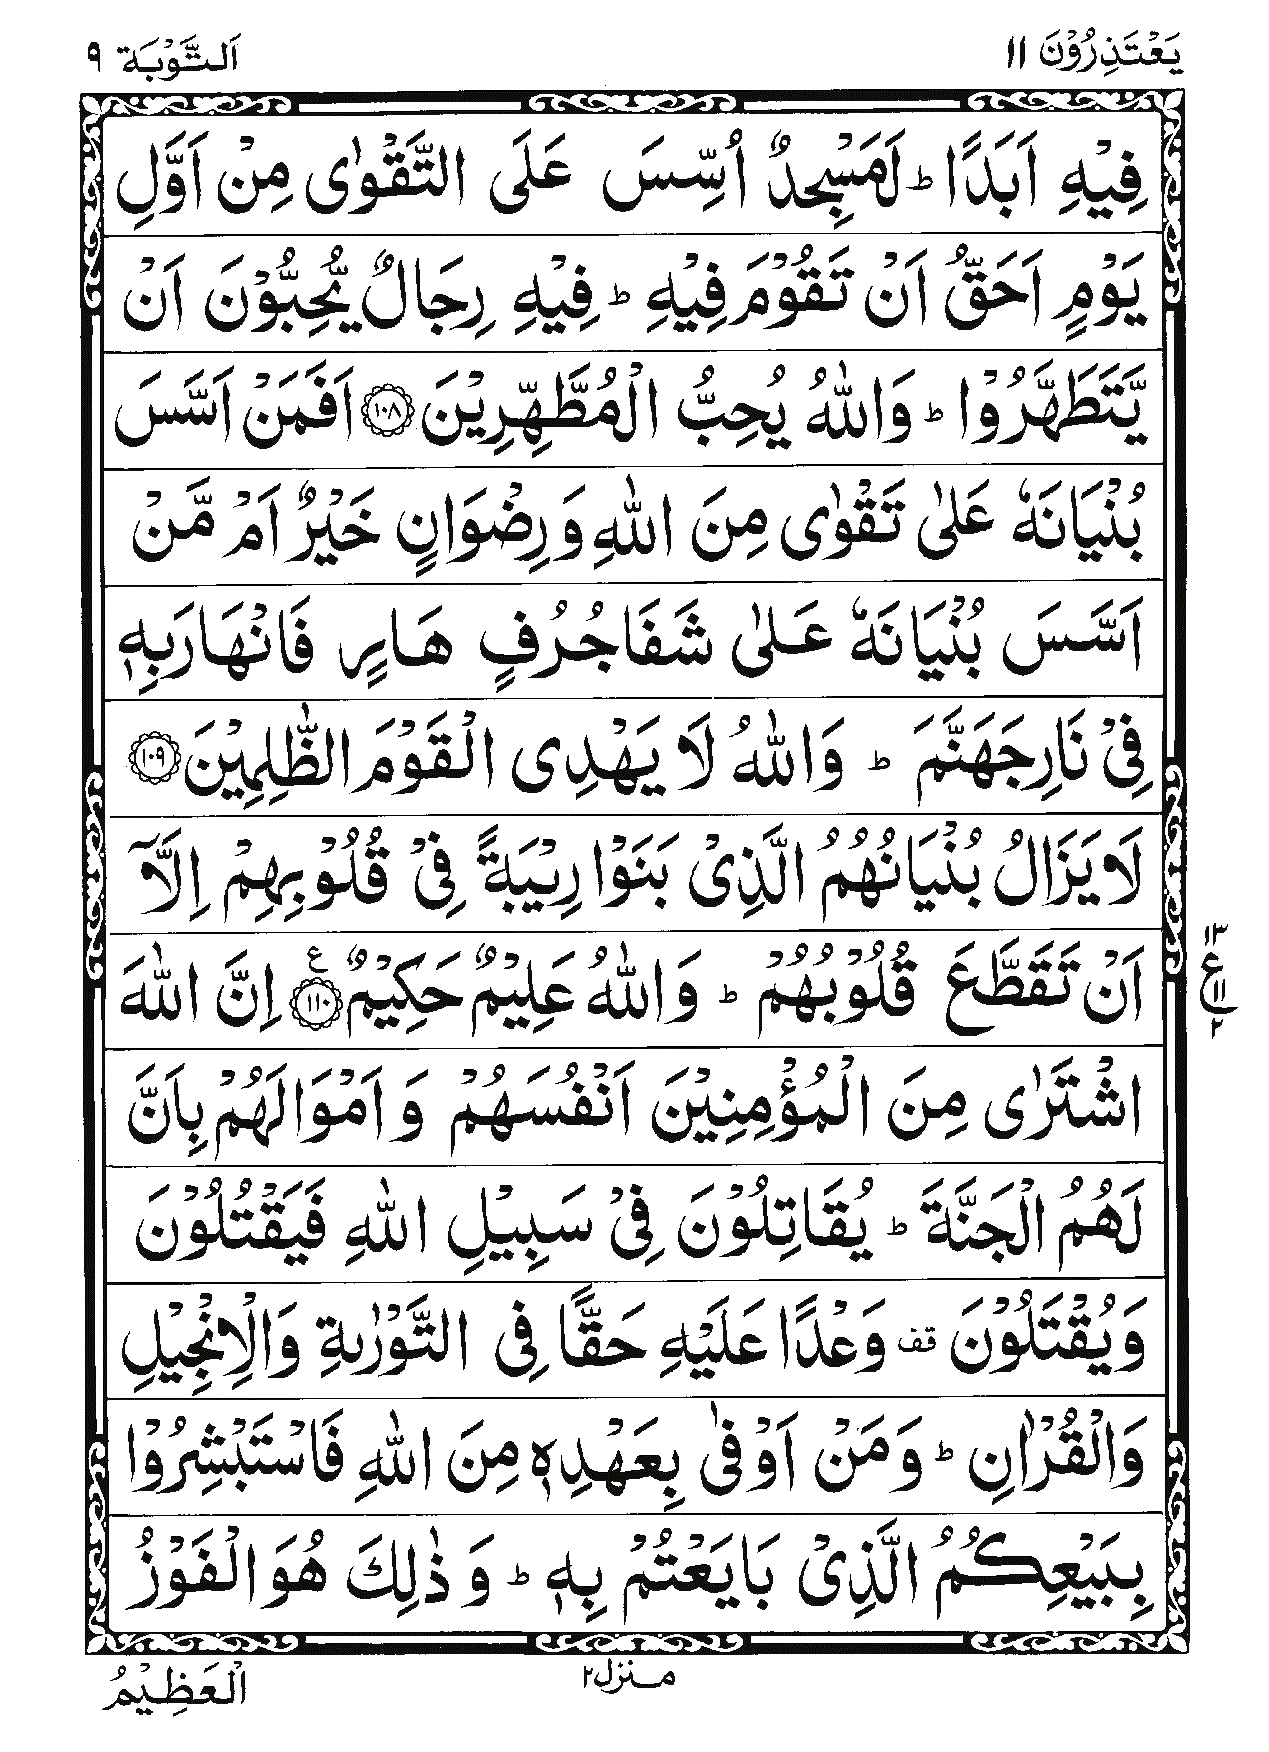 يَعْتَذِرُوْنَ ١١
اَلتَّوْبَة ٩
فِيْهِ اَبَدًا ؕ لَمَسْجِدٌ اُسِّسَ عَلَى التَّقْوٰى مِنْ اَوَّلِ
يَوْمٍ اَحَقُّ اَنْ تَقُوْمَ فِيْهِ ؕ فِيْهِ رِجَالٌ يُّحِبُّوْنَ اَنْ
يَّتَطَهَّرُوْا ؕ وَاللّٰهُ يُحِبُّ الْمُطَّهِّرِيْنَ ١٠٨ اَفَمَنْ اَسَّسَ
بُنْيَانَهٗ عَلٰى تَقْوٰى مِنَ اللّٰهِ وَرِضْوَانٍ خَيْرٌ اَمْ مَّنْ
اَسَّسَ بُنْيَانَهٗ عَلٰى شَفَا جُرُفٍ هَارٍ فَانْهَارَ بِهٖ
فِيْ نَارِ جَهَنَّمَ ؕ وَاللّٰهُ لَا يَهْدِى الْقَوْمَ الظّٰلِمِيْنَ ١٠٩
لَا يَزَالُ بُنْيَانُهُمُ الَّذِيْ بَنَوْا رِيْبَةً فِيْ قُلُوْبِهِمْ اِلَّاۤ
اَنْ تَقَطَّعَ قُلُوْبُهُمْ ؕ وَاللّٰهُ عَلِيْمٌ حَكِيْمٌ ١١٠ ع اِنَّ اللّٰهَ
١٣
ع
١١
٢
اشْتَرٰى مِنَ الْمُؤْمِنِيْنَ اَنْفُسَهُمْ وَ اَمْوَالَهُمْ بِاَنَّ
لَهُمُ الْجَنَّةَ ؕ يُقَاتِلُوْنَ فِيْ سَبِيْلِ اللّٰهِ فَيَقْتُلُوْنَ
وَيُقْتَلُوْنَ قف وَعْدًا عَلَيْهِ حَقًّا فِى التَّوْرٰىةِ وَالْاِنْجِيْلِ
وَالْقُرْاٰنِ ؕ وَمَنْ اَوْفٰى بِعَهْدِهٖ مِنَ اللّٰهِ فَاسْتَبْشِرُوْا
بِبَيْعِكُمُ الَّذِيْ بَايَعْتُمْ بِهٖ ؕ وَ ذٰلِكَ هُوَ الْفَوْزُ
منزل٢
الْعَظِيْمُ